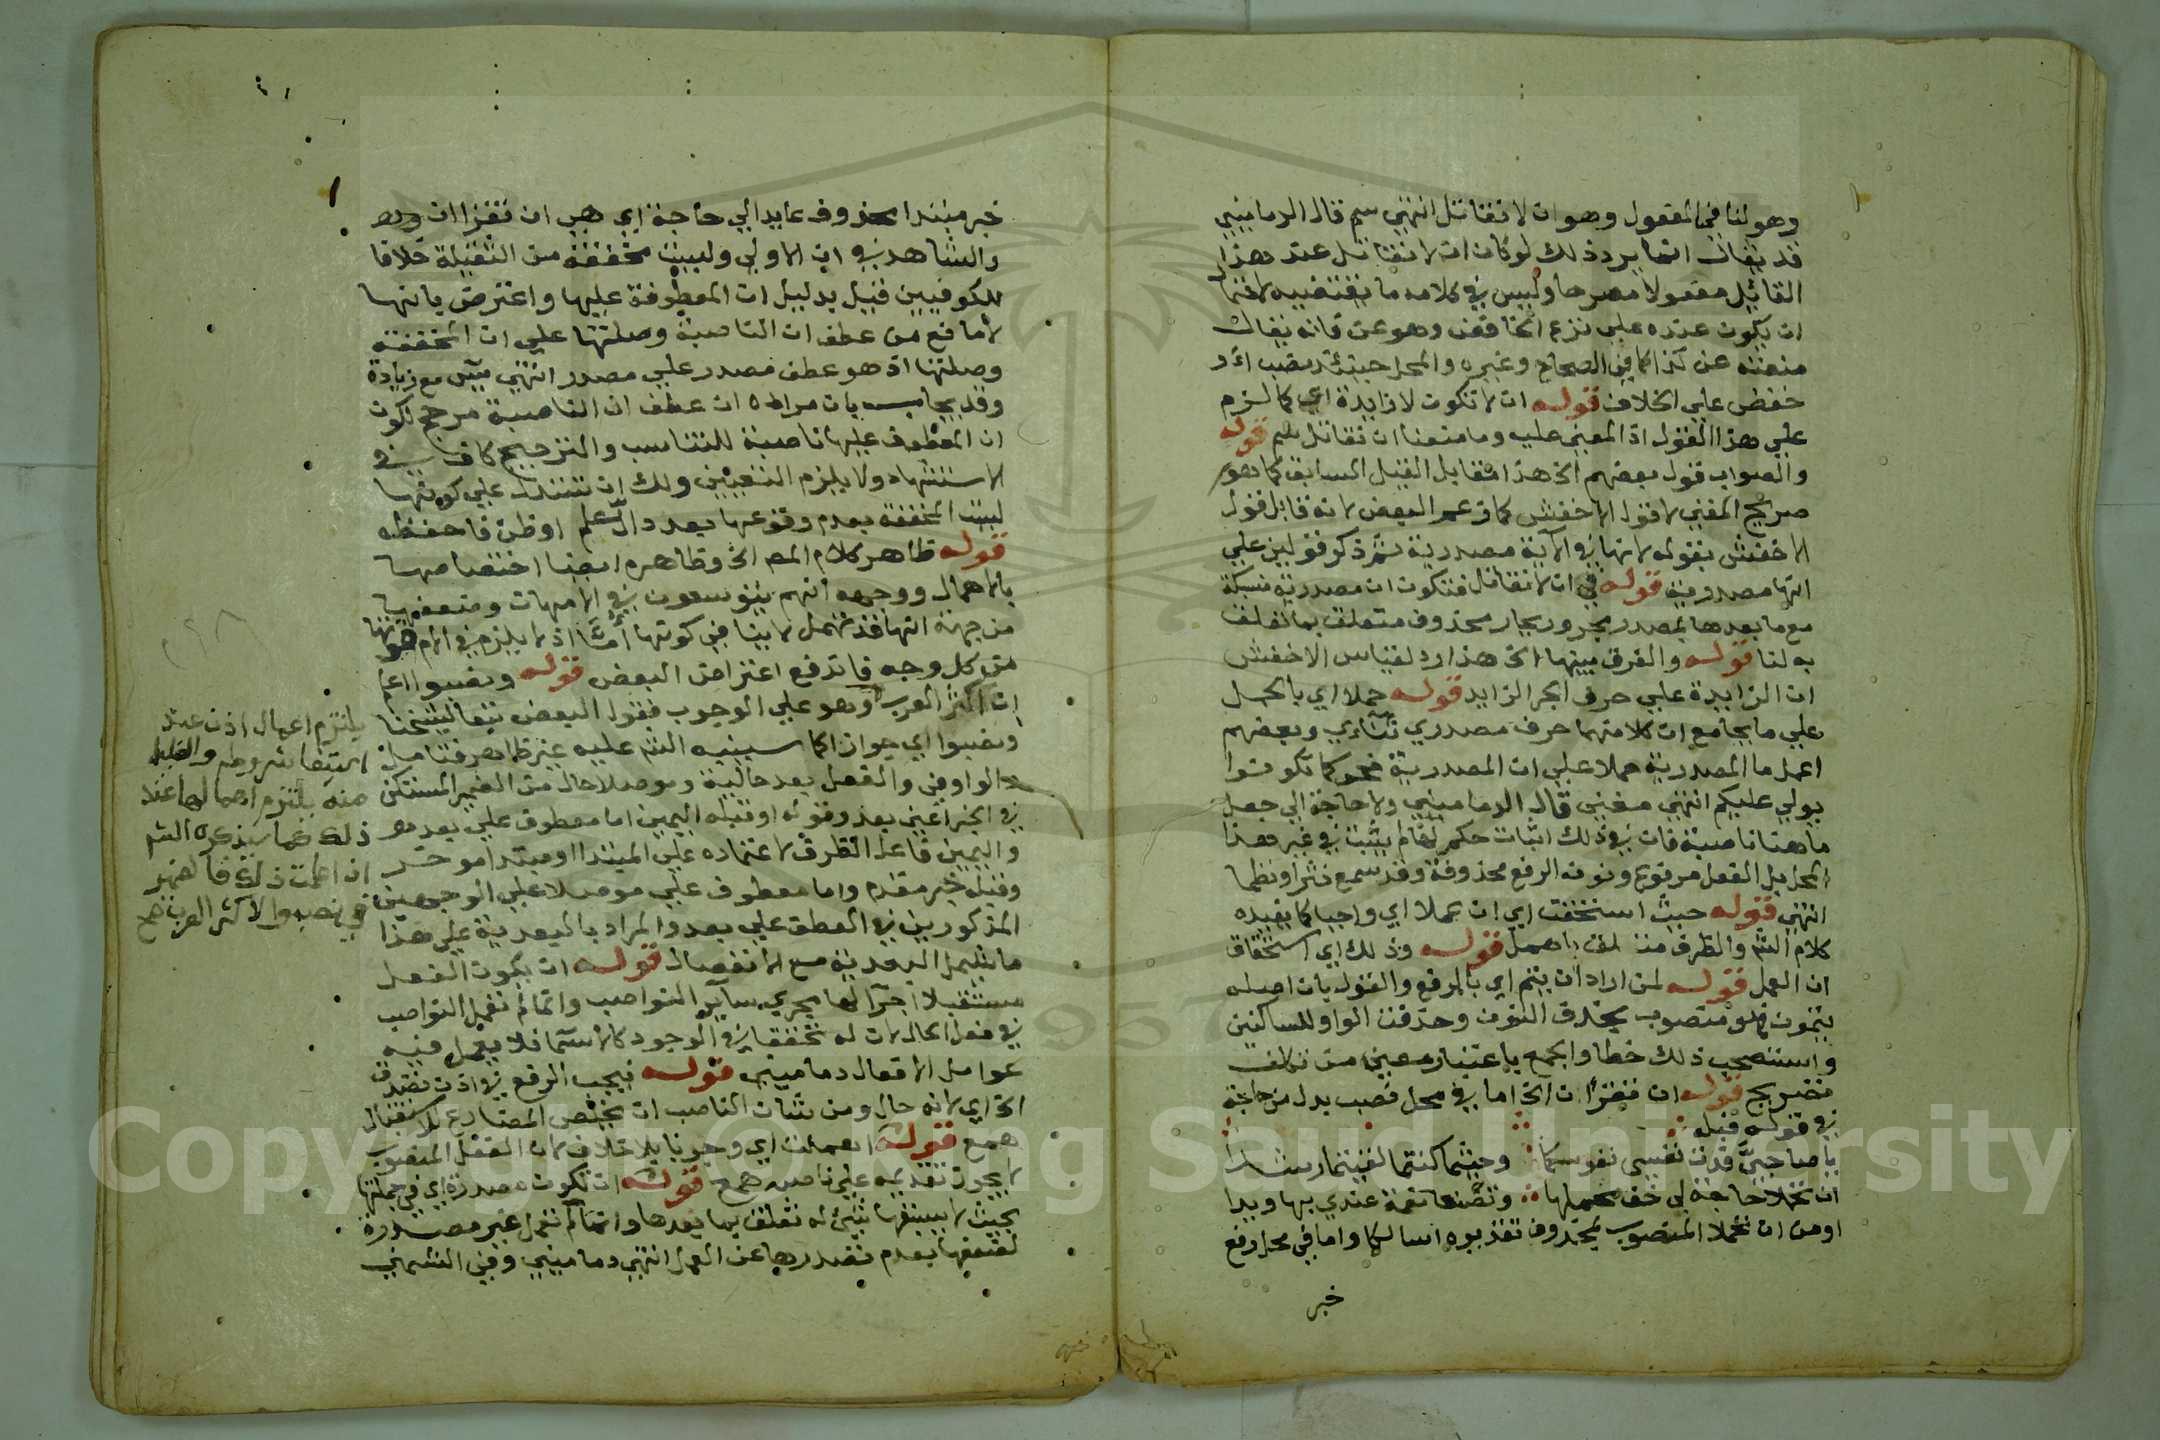 وهو لنا في المفعول وهو ان لا نقاتل انتهى سم قال الدماميني
قد يقال انما يرد ذلك لو كان ان لا نقاتل عند هذا
القائل مفعولا مصرحا وليس في كلامه ما يقتضيه لاحتمال
ان يكون عنده على نزع الخافض وهو عن فانه يقال
منعته عن كذا كما في الصحاح وغيره والمحل حينئذ نصب او
خفض على الخلاف قوله ان لا تكون لا زايدة اي كما لزم
على هذا القول اذ المعنى عليه وما منعنا ان نقاتل سم قوله
والصواب قول بعضهم الخ هذا مقابل القيل السابق كما هو
صريح المغني لا قول الاخفش كما زعم البعض لانه قابل قول
الاخفش بقوله لانها في الآية مصدرية ثم ذكر قولين على
انها مصدرية قوله في ان لا نقاتل فتكون ان مصدرية منسبكة
مع ما بعدها بمصدر مجرور بجار محذوف متعلق بما تعلق
به لنا قوله والفرق بينهما الخ هذا رد لقياس الاخفش
ان الزايدة على حرف الجر الزايد قوله حملا اي بالحمل
على ما بجامع ان كلا منهما حرف مصدري ثنائي وبعضهم
اعمل ما المصدرية حملا على ان المصدرية نحو كما تكونوا
يولي عليكم انتهى مغني قال الدماميني ولا حاجة الى جعل
ما هنا ناصبة فان في ذلك اثبات حكم لها لم يثبت في غير هذا
المحل بل الفعل مرفوع ونون الرفع محذوفة وقد سمع نثرا ونظما
انتهى قوله حيث استحقت اي ان عملا اي واجبا كما يفيده
كلام الشم والظرف متعلق باهمل قوله وذلك اي استحقاق
ان العمل قوله لمن اراد ان يتم اي بالرفع والقول بان اصله
يتمون فهو منصوب بحذف النون وحذفت الواو للساكنين
واستصحب ذلك خطا والجمع باعتبار معنى من تكلف
فتصريح قوله ان تقرآن الخ اما في محل نصب بدل من حاجة
في قوله قبله
يا صاحبيّ فدت نفسي نفوسكما وحيثما كنتما لقيتما رشدا
ان تحملا حاجة لي خف محملها وتصنعا نعمة عندي بها ويدا
او من ان تحملا المنصوب بمحذوف تقديره اسالكما واما في محل رفع
خبر
خبر مبتدا محذوف عايد الى حاجة اي هي ان تقرآن
والشاهد في ان الاولى وليست مخففة من الثقيلة خلافا
للكوفيين قيل بدليل ان المعطوفة عليها واعترض بانها
لا مانع من عطف ان الناصبة وصلتها على ان المخففة
وصلتها اذ هو عطف مصدر على مصدر انتهى يس مع زيادة
وقد يجاب بان مراده ان عطف ان الناصبة مرجح لكون
ان المعطوف عليها ناصبة للتناسب والترجيح كاف في
الاستشهاد ولا يلزم التعيين ولك ان تستدل على كونها
ليست المخففة بعدم وقوعها بعد دال علم او ظن فاحفظه
قوله ظاهر كلام المص الخ وظاهره ايضا اختصاصها
بالاهمال ووجهه انهم يتوسعون في الامهات وضعفها
من جهة انها قد تهمل لا ينافي كونها أمّا اذ لا يلزم في الام قوتها
من كل وجه فاندفع اعتراض البعض قوله ونصبوا اعلم
ان اكثر العرب وهو على الوجوب فقول البعض تبعا لشيخنا
ونصبوا اي جواز اكما سيبينه الشم عليه غير ظاهر فتامل
والواو في والفعل بعد حالية وموصلا حال من الضمير المستكن
في الخبر اعني بعد وقوله او قبله اليمين اما معطوف على بعد
واليمين فاعل الظرف لاعتماده على المبتدا او مبتدا موخر
وقبله خبر مقدم واما معطوف على موصلا على الوجهين
المذكورين في العطف على بعد والمراد بالبعدية على هذا
ما يشمل البعدية مع الانفصال قوله ان يكون الفعل
مستقبلا اجرآ لها مجرى سآير النواصب وانما لم تعمل النواصب
في فعل الحال لان له تحققا في الوجود كالاسمآ فلا يعمل فيه
عوامل الافعال دماميني قوله فيجب الرفع في اذن تصدق
الخ اي لانه حال ومن شان الناصب ان يخلص المضارع للاستقبال
همع قوله اهملت اي وجوبا بلا خلاف لان الفعل المنصوب
لا يجوز تقديمه على ناصبه همع قوله ان تكون مصدرة اي في جملتها
بحيث لا يسبقها شيئ له تعلق بما بعدها وانما لم تعمل غير مصدرة
لضعفها بعدم تصدرها عن العمل انتهى دماميني وفي الشمني
يلتزم اعمال اذن عند
استيفا شروطه والقليل
منه يلتزم اهمالها عند
ذلك كما سيذكره الشم
ان اعلمت ذلك فالضمير
في نصبوا لاكثر العرب صح